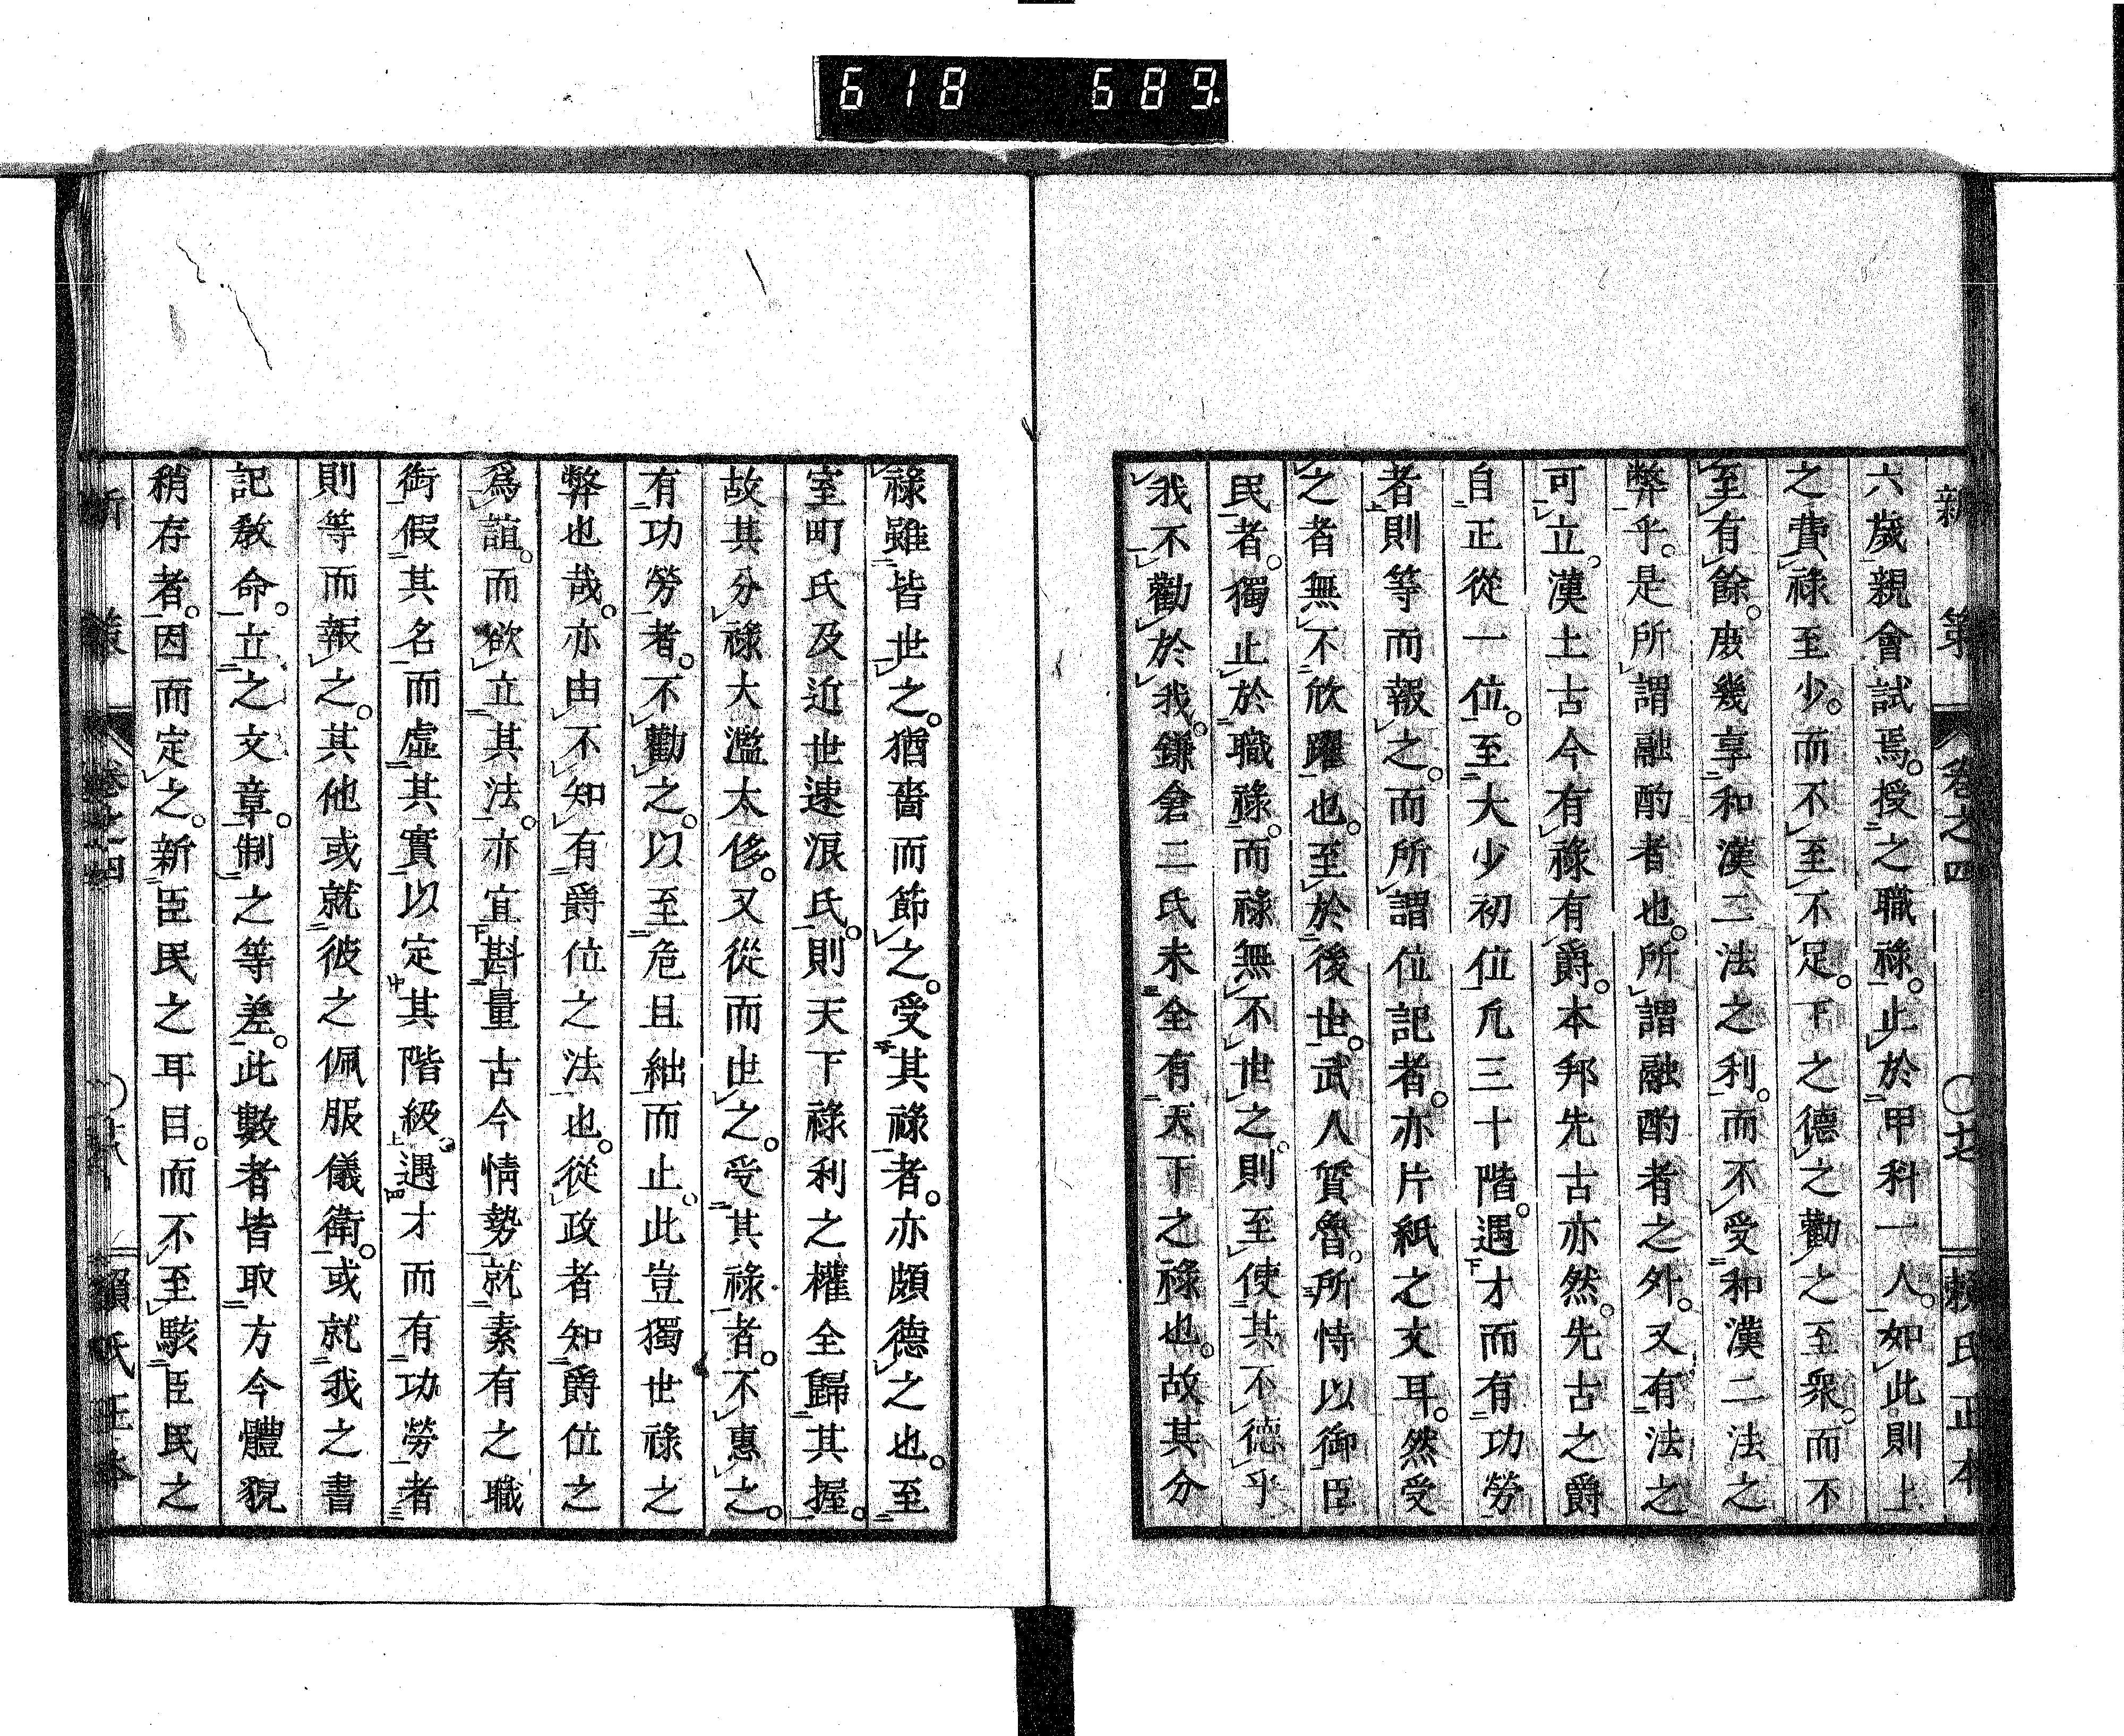 618 689
新策 卷之四 ○十七 賴氏正本
六歲親會試焉。授之職祿。止於甲科一人。如此則上
之費祿至少。而不至不足。下之德之勸之至衆。而不
至有餘。庶幾享和漢二法之利。而不受和漢二法之
弊乎。是所謂融酌者也。所謂融酌者之外。又有法之
可立。漢土古今有祿有爵。本邦先古亦然。先古之爵
自正從一位。至大少初位凡三十階。遇才而有功勞
者則等而報之。而所謂位記者。亦片紙之文耳。然受
之者無不欣躍也。至於後世。武人質魯。所恃以御臣
民者。獨止於職祿。而祿無不世之。則至使其不德乎
我不勸於我。鎌倉二氏未全有天下之祿也。故其分
祿雖皆世之。猶嗇而節之。受其祿者。亦頗德之也。至
室町氏及近世速浪氏。則天下祿利之權全歸其握。
故其分祿大濫太侈。又從而世之。受其祿者。不惠之。
有功勞者。不勸之。以至危且絀而止。此豈獨世祿之
弊也哉。亦由不知有爵位之法也。從政者知爵位之
爲誼。而欲立其法。亦宜斟量古今情勢就素有之職
銜假其名而虛其實以定其階級。遇才而有功勞者
則等而報之。其他或就彼之佩服儀衛。或就我之書
記敎命。立之文章。制之等差。此數者皆取方今體貌
稍存者。因而定之。新臣民之耳目。而不至駭臣民之
新策 卷之四 賴氏正本